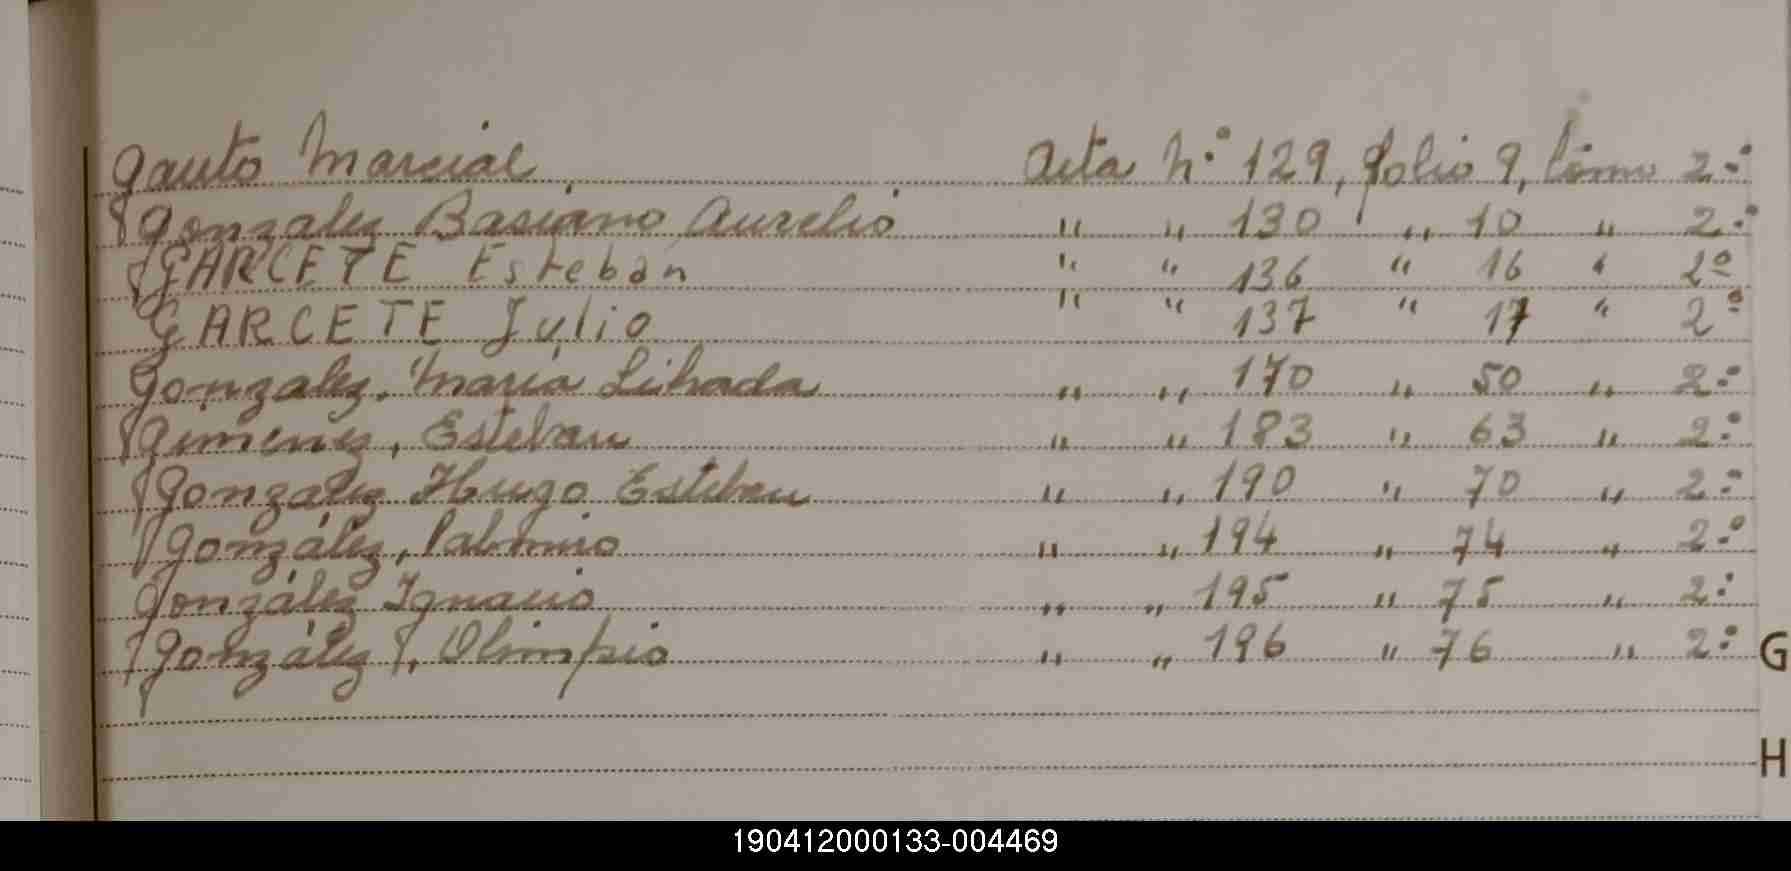 Gauto Marcial Acta N.° 129, folio 9, tomo 2.°
Gonzalez Basiano Aurelio " " 130 " 10 " 2.°
GARCETE Esteban " " 136 " 16 " 2º
GARCETE Julio " " 137 " 17 " 2º
Gonzalez, Maria Librada " " 170 " 50 " 2.°
Gimenez, Esteban " " 183 " 63 " 2.°
González Hugo Esteban " " 190 " 70 " 2.°
González, " " 194 " 74 " 2.°
González Ignacio " " 195 " 75 " 2.°
González , Olimpio " " 196 " 76 " 2.°
G
H
190412000133-004469